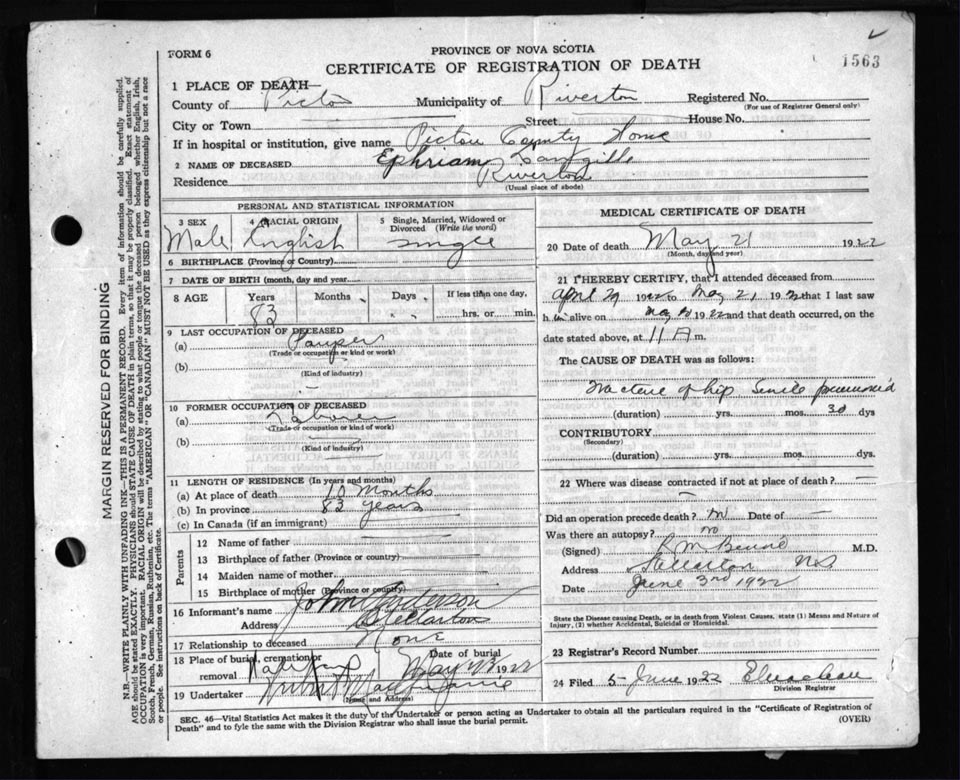 1563
FORM 6
PROVINCE OF NOVA SCOTIA
CERTIFICATE OF REGISTRATION OF DEATH
1 PLACE OF DEATH—
County of Pictou Municipality of Riverton Registered No.
(For use of Registrar General only)
City or Town Street House No.
If in hospital or institution, give name Pictou County Home
2 NAME OF DECEASED Ephriam
Residence Riverton
(Usual place of abode)
PERSONAL AND STATISTICAL INFORMATION
3 SEX 4 RACIAL ORIGIN 5 Single, Married, Widowed or Divorced (Write the word)
Male English single
6 BIRTHPLACE (Province or Country)
7 DATE OF BIRTH (month, day and year
8 AGE Years Months Days If less than one day,
83 hrs. or min.
9 LAST OCCUPATION OF DECEASED
(a) Pauper
(Trade or occupation or kind or work)
(b)
(Kind of industry)
10 FORMER OCCUPATION OF DECEASED
(a) Laborer
(Trade or occupation or kind of work)
(b)
(Kind of industry)
11 LENGTH OF RESIDENCE (In years and months)
(a) At place of death 10 Months
(b) In province 83 years
(c) In Canada (if an immigrant)
Parents
12 Name of father
13 Birthplace of father (Province or country)
14 Maiden name of mother
15 Birthplace of mother (Province or country)
16 Informant's name John Anderson
Address Stellarton
17 Relationship to deceased None
18 Place of burial, cremation or removal Date of burial
May 1922
19 Undertaker
(Name and Address)
MEDICAL CERTIFICATE OF DEATH
20 Date of death May 21 1922
(Month, day and year)
21 I HEREBY CERTIFY, that I attended deceased from
April 29 1922 to May 21, 1922 that I last saw
him alive on May 1922 and that death occurred, on
date stated above, at 11 A m.
The CAUSE OF DEATH was as follows:
Fracture of hip Senile pneumonia
(duration) yrs. mos. 30 dys
CONTRIBUTORY
(Secondary)
(duration) yrs. mos. dys.
22 Where was disease contracted if not at place of death? —
Did an operation precede death? no Date of —
Was there an autopsy? no
(Signed) M.D.
Address Stellarton NS
Date June 3rd 1922
State the Disease causing Death, or in death from Violent Causes, state (1) Means and Nature of
Injury, (2) whether Accidental, Suicidal or Homicidal.
23 Registrar's Record Number
24 Filed 5 June 1922
Division Registrar
SEC. 46—Vital Statistics Act makes it the duty of the Undertaker or person acting as Undertaker to obtain all the particulars required in the "Certificate of Registration of
Death" and to fyle the same with the Division Registrar who shall issue the burial permit. (OVER)
MARGIN RESERVED FOR BINDING
N.B.—WRITE PLAINLY WITH UNFADING INK—THIS IS A PERMANENT RECORD. Every item of information should be carefully supplied.
AGE should be stated EXACTLY. PHYSICIANS should STATE CAUSE OF DEATH in plain terms, so that it may be properly classified. Exact statement of
OCCUPATION is very important. RACIAL ORIGIN will be described by stating to what people or tongue the deceased person belonged whether English, Irish,
Scotch, French, German, Russian, Ruthenian, etc. The terms "AMERICAN" OR "CANADIAN" MUST NOT BE USED as they express citizenship but not a race
or people. See instructions on back of Certificate.